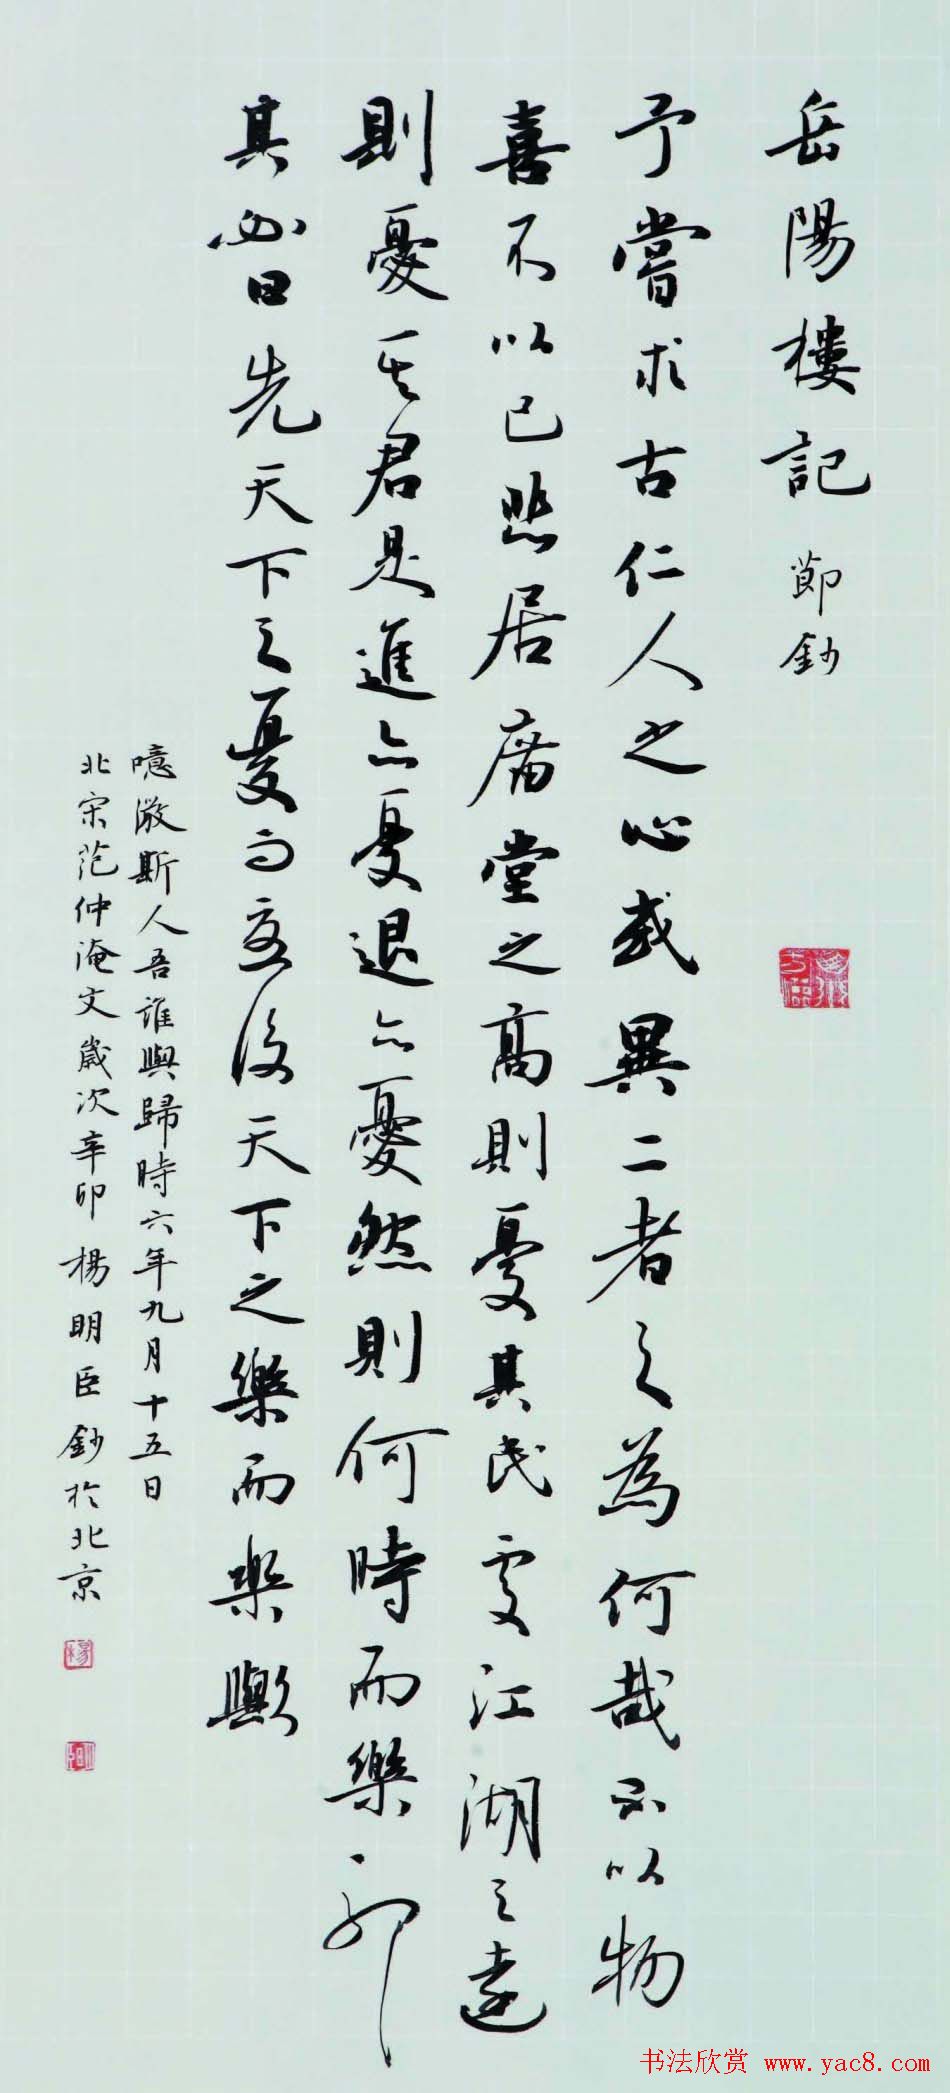 岳陽樓記 節鈔
予嘗求古仁人之心或異二者之為何哉不以物
喜不以己悲居廟堂之高則憂其民處江湖之遠
則憂其君是進亦憂退亦憂然則何時而樂耶
其必曰先天下之憂而憂後天下之樂而樂歟
噫微斯人吾誰與歸時六年九月十五日
北宋范仲淹文歲次辛卯楊明臣鈔於北京
楊
书法欣赏 www.yac8.com